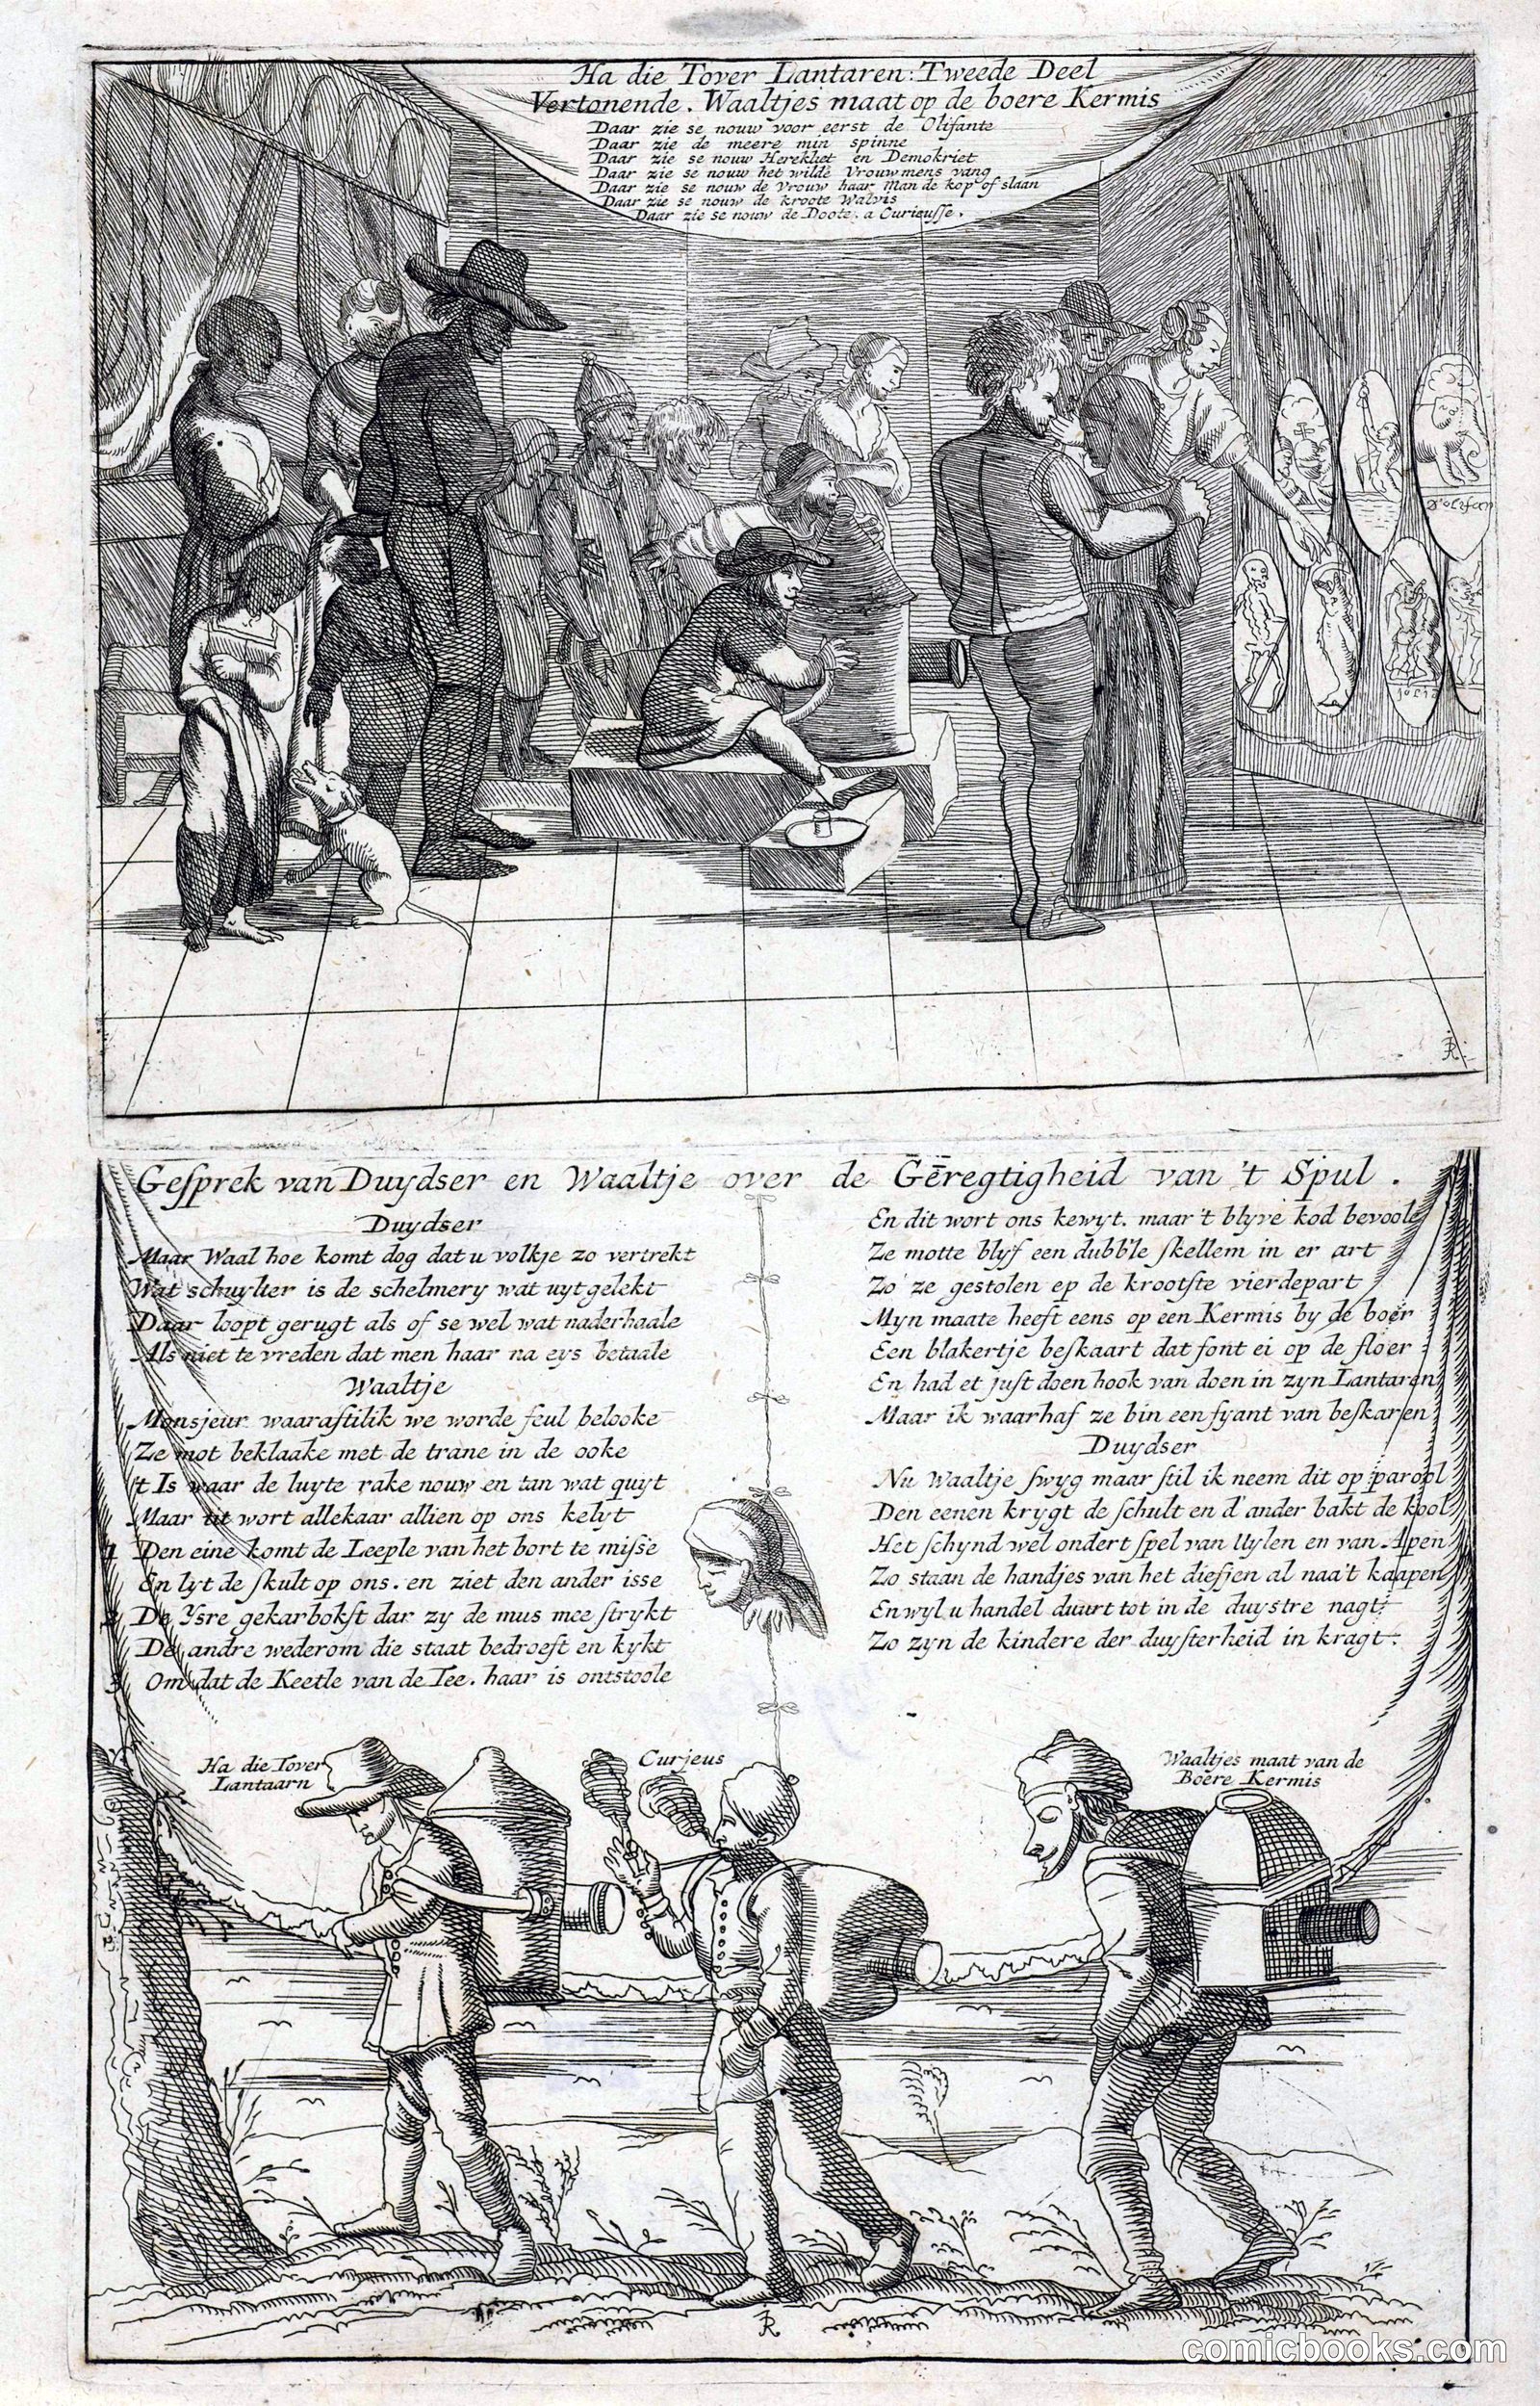 Ha die Tover Lantaren: Tweede Deel
Vertonende. Waaltjes maat op de boere Kermis
Daar zie se nouw voor eerst de Olifante
Daar zie de meere min spinne
Daar zie se nouw Herekliet en Demokriet
Daar zie se nouw het wilde Vrouwmens vang
Daar zie se nouw de Vrouw haar Man de kop of slaan
Daar zie se nouw de kroote Walvis
Daar zie se nouw de Doote. a Curieusse.
d'olifan
Gesprek van Duydser en Waaltje over de Geregtigheid van 't Spul.
Duydser
Maar Waal hoe komt dog dat u volkje zo vertrekt
Wat schuylter is de schelmery wat uytgelekt
Daar loopt gerugt als of se wel wat naderhaale
Als niet te vreden dat men haar na eys betaale
Waaltje
Monsjeur waarastilik we worde feul belooke
Ze mot beklaake met de trane in de ooke
't Is waar de luyte rake nouw en tan wat quyt
Maar tit wort allekaar allien op ons kelyt
1 Den eine komt de Leeple van het bort te misse
En lyt de skult op ons. en ziet den ander isse
2 De Ysre gekarbokst dar zy de mus mee strykt
De andre wederom die staat bedroeft en kykt
3 Om dat de Keetle van de Tee. haar is ontstoole
En dit wort ons kewyt. maar 't blyve kod bevoole
Ze motte blyf een dubb'le skellem in er art
Zo ze gestolen ep de krootste vierdepart
Myn maate heeft eens op een Kermis by de boer
Een blakertje beskaart dat font ei op de floer
En had et just doen hook van doen in zyn Lantaren
Maar ik waarhaf ze bin een fyant van beskaren
Duydser
Nu Waaltje swyg maar stil ik neem dit op parool
Den eenen krygt de schult en d'ander bakt de kool
Het schynd wel ondert spel van Uylen en van Apen
Zo staan de handjes van het diefjen al naa't kaapen
En wyl u handel duurt tot in de duystre nagt
Zo zyn de kindere der duysterheid in kragt.
Ha die Tover
Lantaarn
Curjeus
Waaltjes maat van de
Boere Kermis
comicbooks.com